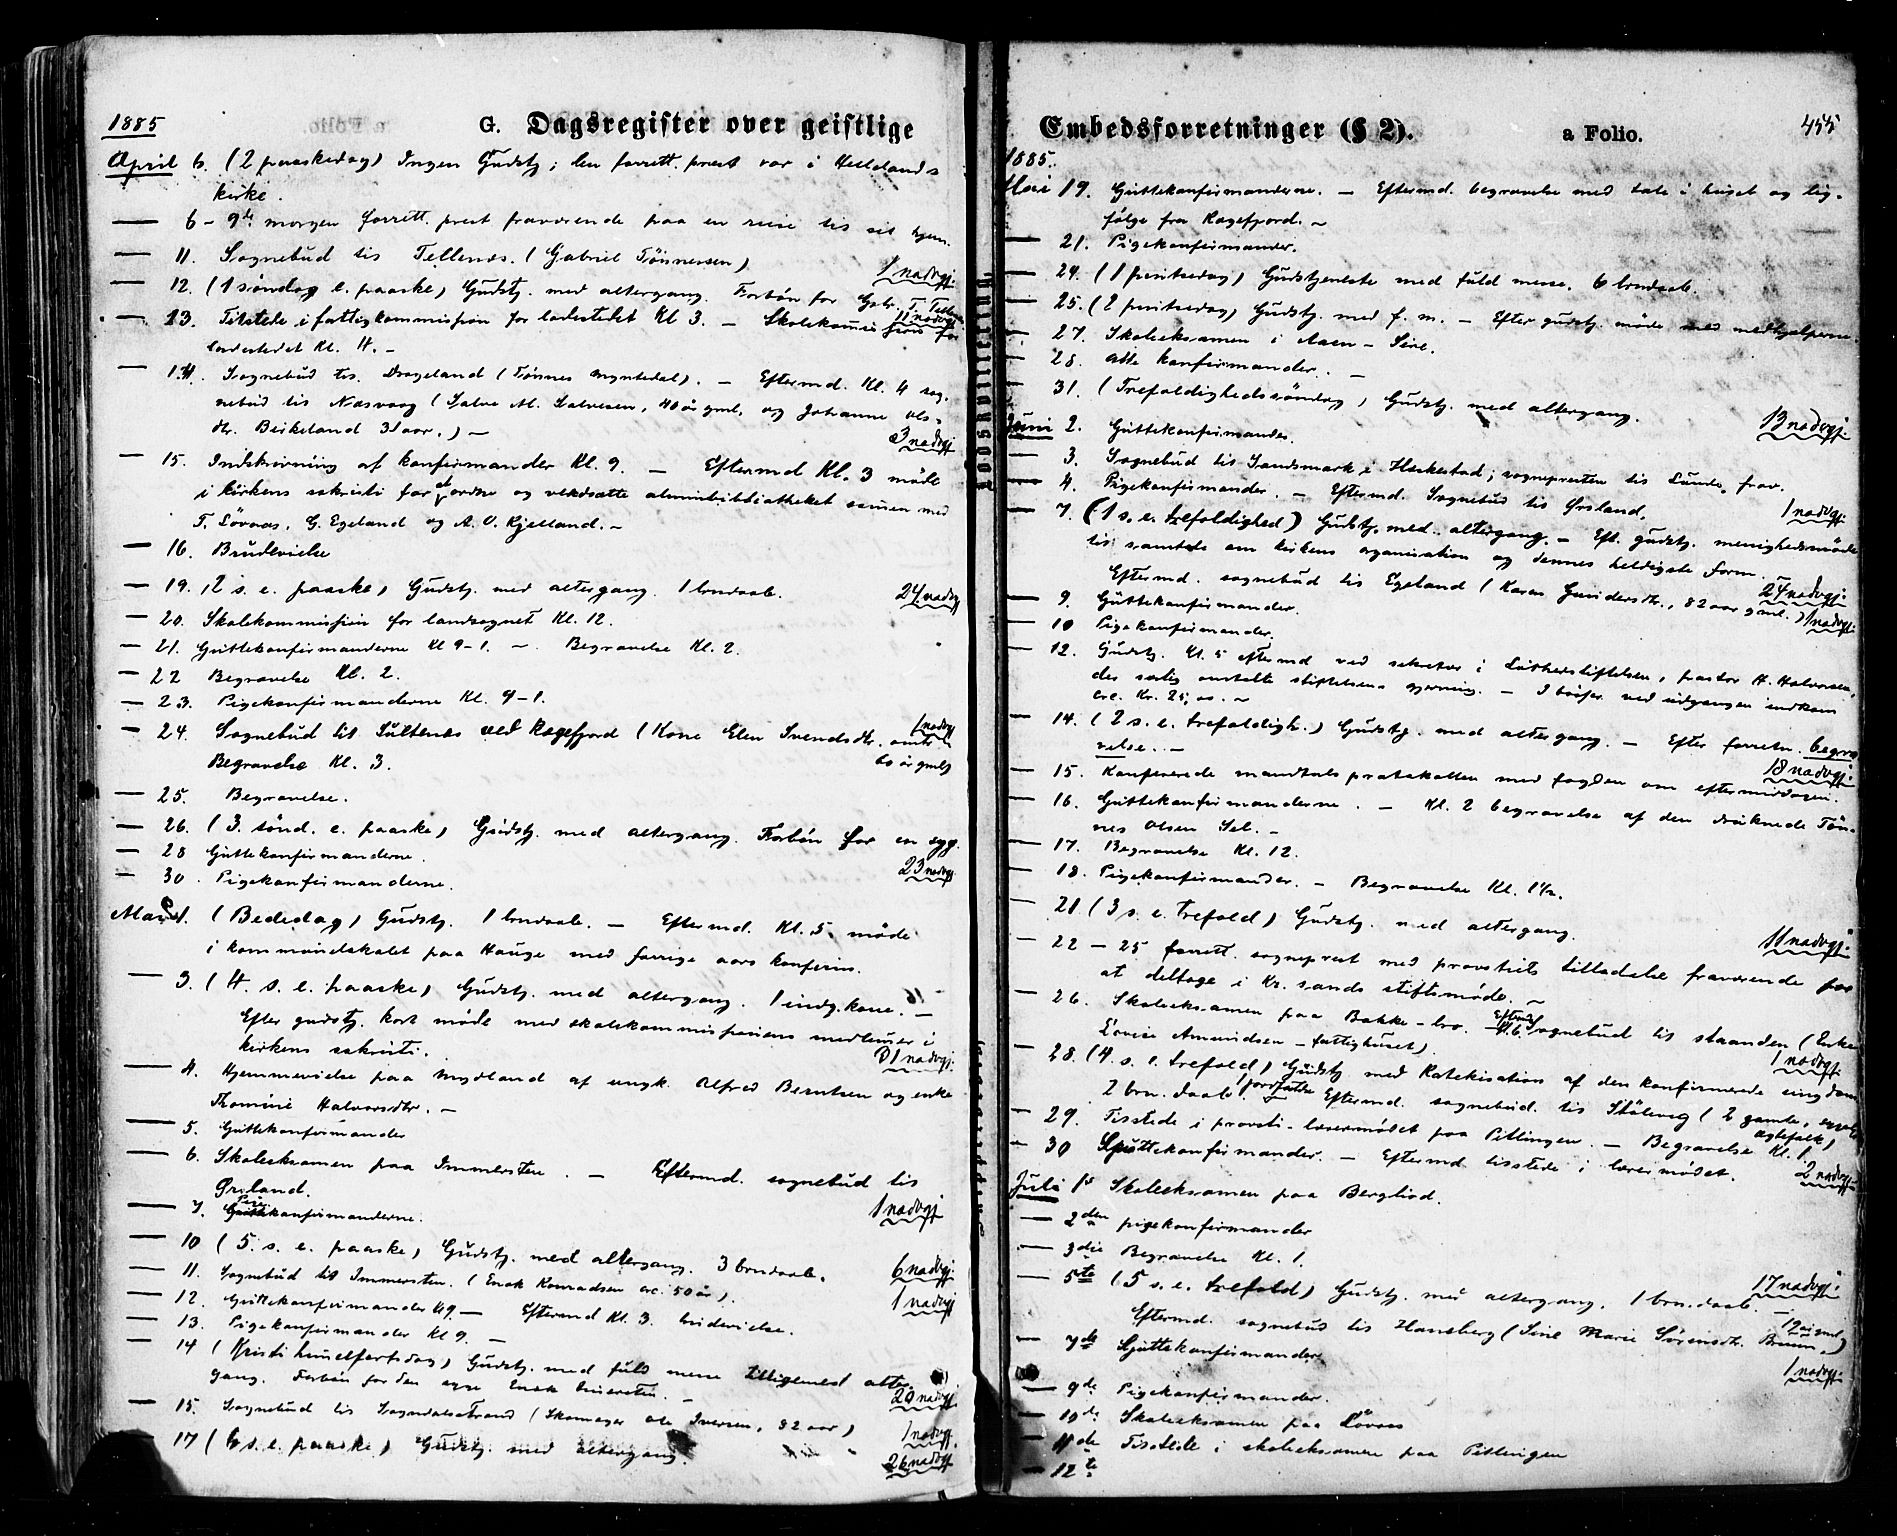 1885
G. Dagsregister over geistlige
April 6. (2 paaskedag) Ingen Gudstj; den forrett. prest var i Hellelands
kirke.
— 6 – 9de morgen forrett. prest fraværende paa en reise til sit hjem.
— 11. Sognebud til Tellenes. (Gabriel Tönnesen) 1 nadvgj.
— 12. (1 söndag e. paaske) Gudstj. med altergang. Forbön for Gabr. T. Tellenes
11 nadvgj
— 13. Tilstede i fattigkommission for ladestedet Kl 3. — Skolekommission for
ladestedet Kl. 4. –
— 14. Sognebud til Drageland (Tönnes Myntedal). — Eftermd. Kl. 4 sog-
nebud til Nesvaag (Salve M. Salvesen, 40 år gml. og Johanne Ols-
dtr. Birkeland 31 aar.) — 3 nadvgj
— 15. Indskrivning af konfirmander Kl. 9. — Eftermd Kl. 3 möde
i kirkens sakristi for at ordne og veksatte almuebibliotheket samen med
T. Lövaas, G. Egeland og A. O. Kjelland. –
— 16. Brudevielse
— 19. (2 s. e. paaske) Gudstj. med altergang. 1 brndaab. 24 nadvgj
— 20. Skolekommission for landsognet Kl. 12.
— 21. Guttekonfirmanderne Kl 9-1. — Begravelse Kl. 2.
— 22 Begravelse Kl. 2.
— 23. Pigekonfirmanderne Kl. 9-1.
— 24. Sognebud til Sultenes ved Ragefjord (Kone Elen Svendsdtr. omtr. 1 nadvgj
60 år gml)
Begravelse Kl. 3.
— 25. Begravelse.
— 26. (3. sönd. e. paaske) Gudstj. med altergang. Forbön for en syg.
— 28 Guttekonfirmanderne. 23 nadvgj
— 30. Pigekonfirmanderne.
Mai 1. (Bededag) Gudstj. 1 brndaab. — Eftermd. Kl. 5 möde
i kommunelokalet paa Hauge med forrige aars konfirm.
— 3. (4. s. e. paaske) Gudstj. med altergang. 1 indg. kone. —
Efter gudstj. kort möde med skolekommissionens medlemer i
kirkens sakristi. 31 nadvgj.
— 4. Hjemmevielse paa Mydland af ungk. Alfred Berntsen og enke
Thomine Halvorsdtr. —
— 5. Guttekonfirmander
— 6. Skoleeksamen paa Immersten. — Eftermd. sognebud til
Örsland. 1 nadvgj
— 7. Pigekonfirmanderne.
— 10 (5. s. e. paaske) Gudstj. med altergang. 3 brndaab. 6 nadvgj.
— 11. Sognebud til Immersten. (Enok Konradsen crc. 50 år). 1 nadvgj
— 12. Guttekonfirmander Kl 9 — Eftermd Kl. 3. brudevielse.
— 13. Pigekonfirmander Kl 9. —
— 14 (Kristi himelfartsdag) Gudstj. med fuld messe tilligemed alter-
gang. Forbön for den syge Enok Immersten. — 20 nadvgj.
— 15. Sognebud til Sogndalsstrand (Skomager Ole Iversen, 82 aar) 1 nadvgj.
— 17 (6 s. e. paaske) Gudstj. med altergang. 26 nadvgj
Embedsforretninger (§ 2).
a Folio.
455
1885.
Mai 19. Guttekonfirmanderne. — Eftermd. begravelse med tale i huset og lig-
følge fra Ragefjord. ~
— 21. Pigekonfirmander.
— 24. (1 pintsedag) Gudstjeneste med fuld messe. 6 brndaab.
— 25. (2 pintsedag) Gudstj. med f. m. — Efter gudstj. möde med medhjelperne.
— 27. Skoleeksamen i Aaen-Sire.
— 28. alle konfirmander. —
— 31. (Trefoldighedssöndag) Gudstj. med altergang. 13 nadvgj.
Juni 2. Guttekonfirmander.
— 3. Sognebud til Sandsmark i Heskestad; sognepresten til Lunde frav.
— 4. Pigekonfirmander. — Eftermd. Sognebud til Örsland. 1 nadvgj.
— 7. (1 s. e. trefoldighed) Gudstj. med altergang. — Eft. gudstj. menighedsmöde
til samtale om kirkens organisation og dennes heldigste form. 24 nadvgj.
Eftermd. sognebud til Egeland (Karen Gundersdtr., 82 aar gml.) 1 nadvgj.
— 9. Guttekonfirmander.
— 10 Pigekonfirmander.
— 12. Gudstj. Kl. 5 eftermd ved sekretær i Lutherstiftelsen, pastor H. Halvorsen,
der særlig omtalte stiftelsens gjerning. — I bösser ved udgangen indkom
crc. Kr. 25,00. ~
— 14. (2 s. e. trefoldigh.) Gudstj. med altergang. — Efter forretn. begra-
velse. — 18 nadvgj.
— 15. Konfererede mandtalsprotokollen med fogden om eftermiddagen.
— 16. Guttekonfirmanderne. — Kl. 2 begravelse af den druknede Tön-
nes Olsen Sel. —
— 17. Begravelse Kl. 12.
— 18. Pigekonfirmander. — Begravelse Kl. 1½.
— 21 (3 s. e. trefold) Gudstj. med altergang. 11 nadvgj.
— 22 – 25 forrett. sogneprest med provstiets tilladelse fraværende for
at deltage i Kr.sands stiftsmöde. ~
— 26. Skoleeksamen paa Bakke-bro. — Eftmd Kl. 6. sognebud til staanden (Enke
Lovise Amundsen – fattighuset). 1 nadvgj.
— 28. (4. s. e. trefold) Gudstj med Katekisation af den konfirmerede ungdom
2 brn. daab. 1 jordfæstelse Eftermd. sognebud til Stöleveg (2 gamle, sygelige
Ægtefolk) 2 nadvgj.
— 29. Tilstede i provsti-lærermödet paa Pitlingen. — Begravelse Kl. 1.
— 30 Guttekonfirmander. — Eftermd tilstede i lærermödet.
Juli 1ste Skoleeksamen paa Bergliod.
— 2den pigekonfirmander
— 3die Begravelse Kl. 1.
— 5te (5 s. e. trefold) Gudstj. med altergang. 1 brn. daab. — 17 nadvgj.
Eftermd. sognebud til Hansberg (Sine Marie Sörensdtr. Bruun, 19 år gml)
1 nadvgj.
— 7de Guttekonfirmander.
— 9de Pigekonfirmander.
— 10de Skoleeksamen paa Lövaas
— 11de Tilstede i skoleeksamen paa Pitlingen
— 12te